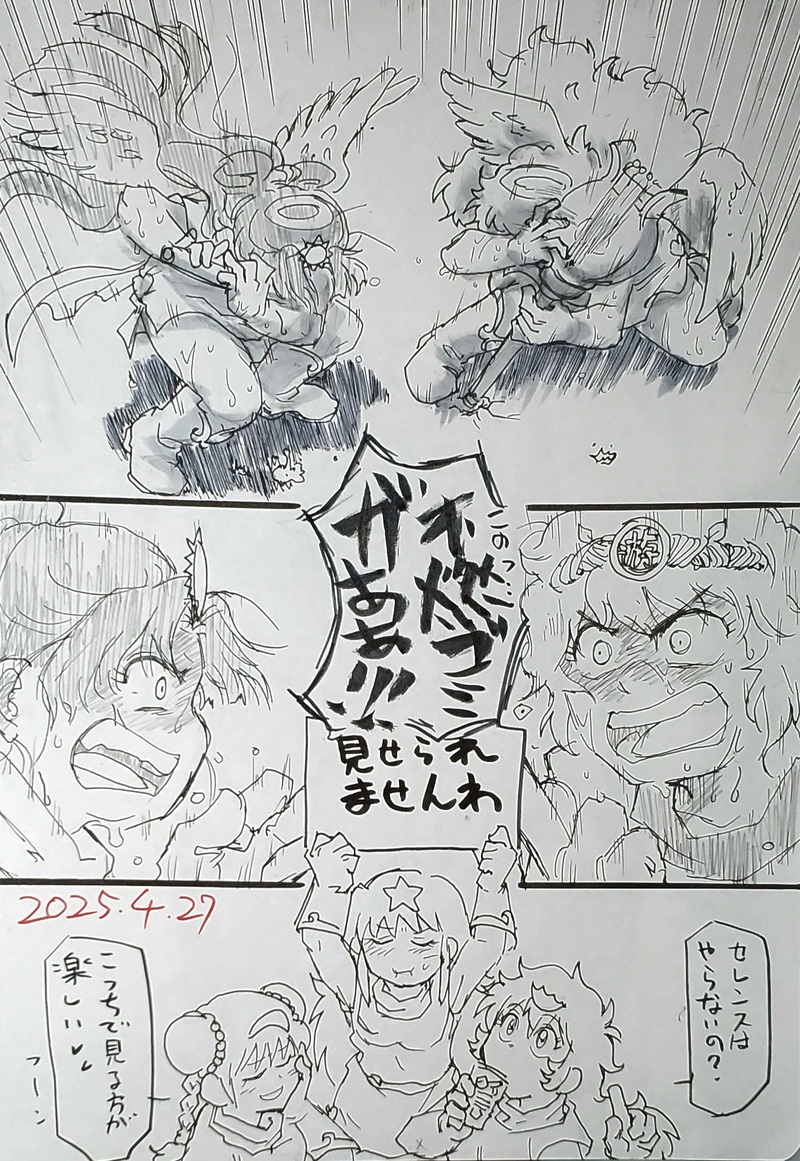 このっ…
不燃ゴミ
がああ!!
遊
見せられ
ませんわ
2025.4.27
セレンスは
やらないの?
こっちで見る方が
楽しい♥♥
フーン